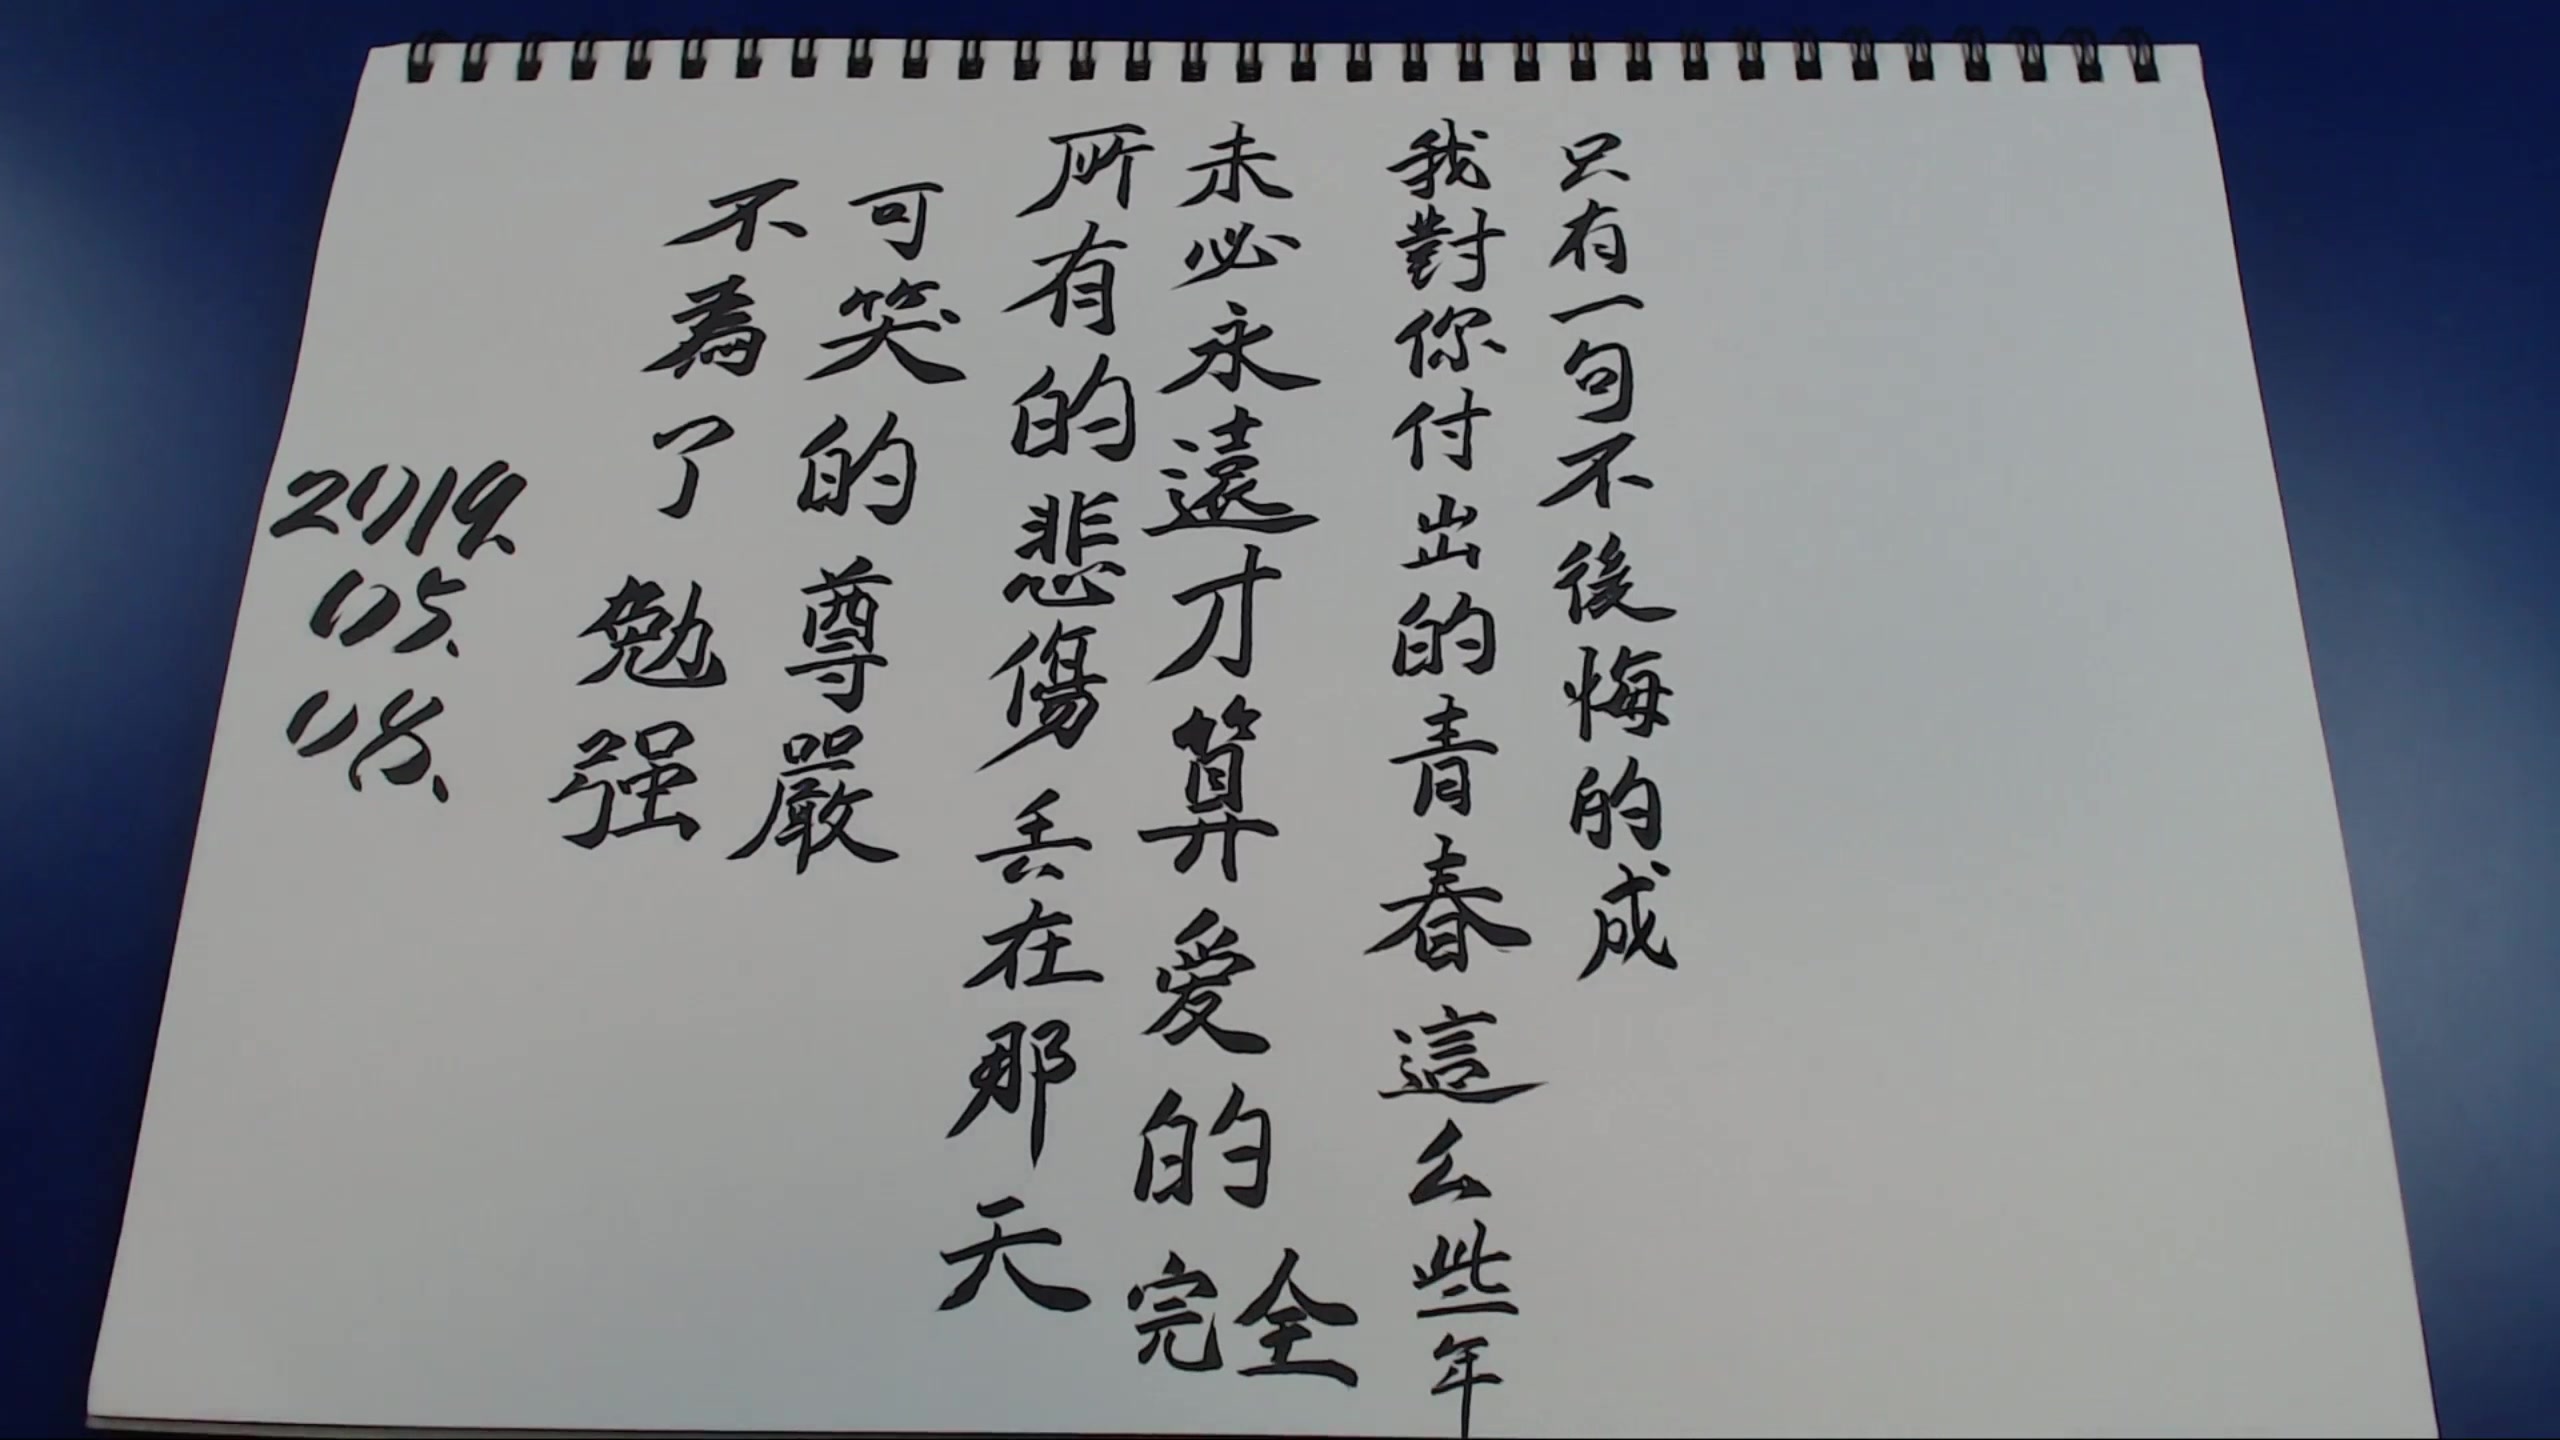 只有一句不後悔的成
我對你付出的青春這么些年
未必永遠才算愛的完全
所有的悲傷丟在那天
可笑的尊嚴
不為了勉强
2019.
05.
08.